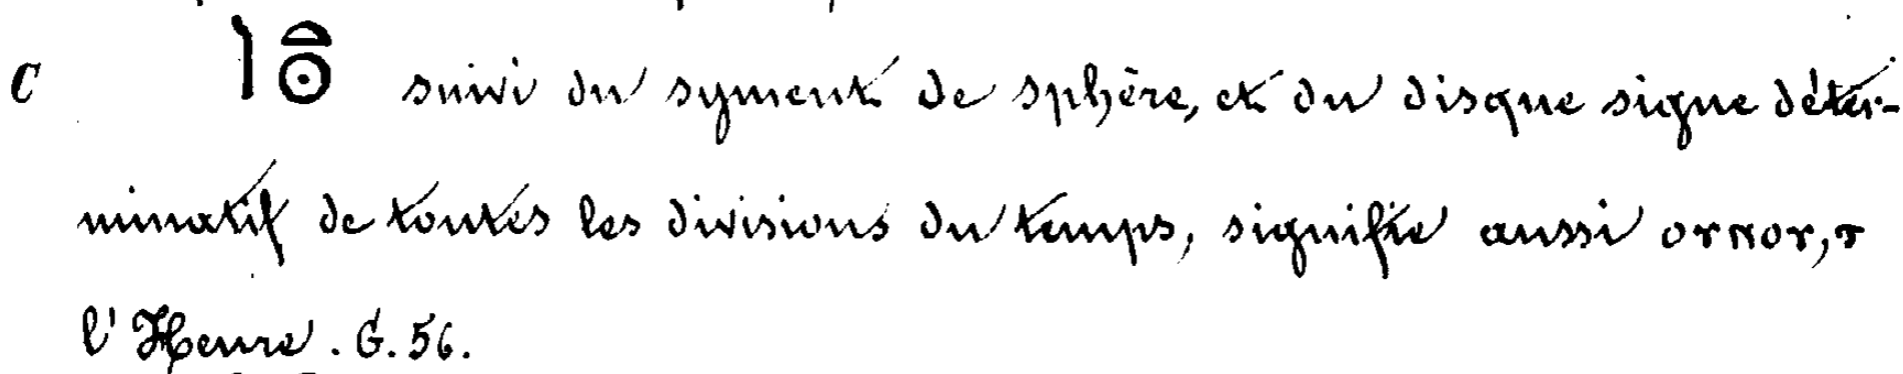 C 𓏏𓇳 suivi du segment de sphère, et du disque signe déter-
minatif de toutes les divisions du temps, signifie aussi ⲟⲩⲛⲟⲩ,ⲧ
l'Heure. G. 56.